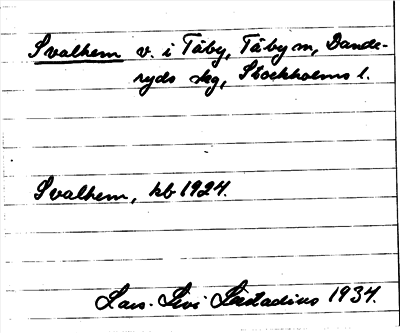 Svalhem v. i Täby, Täby sn, Dande-
ryds skg, Stockholms l.
Svalhem, kb 1924.
Lars-Levi Læstadius 1934.